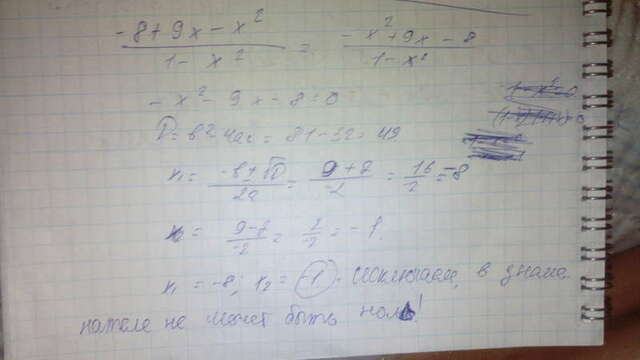 (-8+9x-x²)/(1-x²) = (-x²+9x-8)/(1-x²)
-x²-9x-8=0
D=в²-4ас=81-32=49
x₁=(-в+√D)/2а=(9+7)/-2=16/-2=-8
x₂=(9-7)/-2=2/-2=-1
x₁=-8; x₂=-1 - исключаем, в знаме-
нателе не может быть ноль!